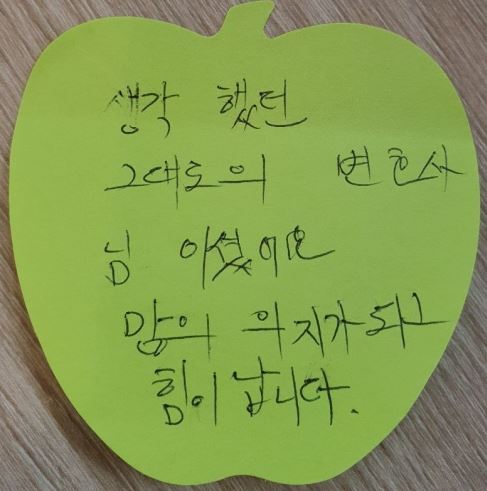 생각 했던
그대로의 변호사
님 이셨어요
맘의 의지가 되고
힘이 납니다.